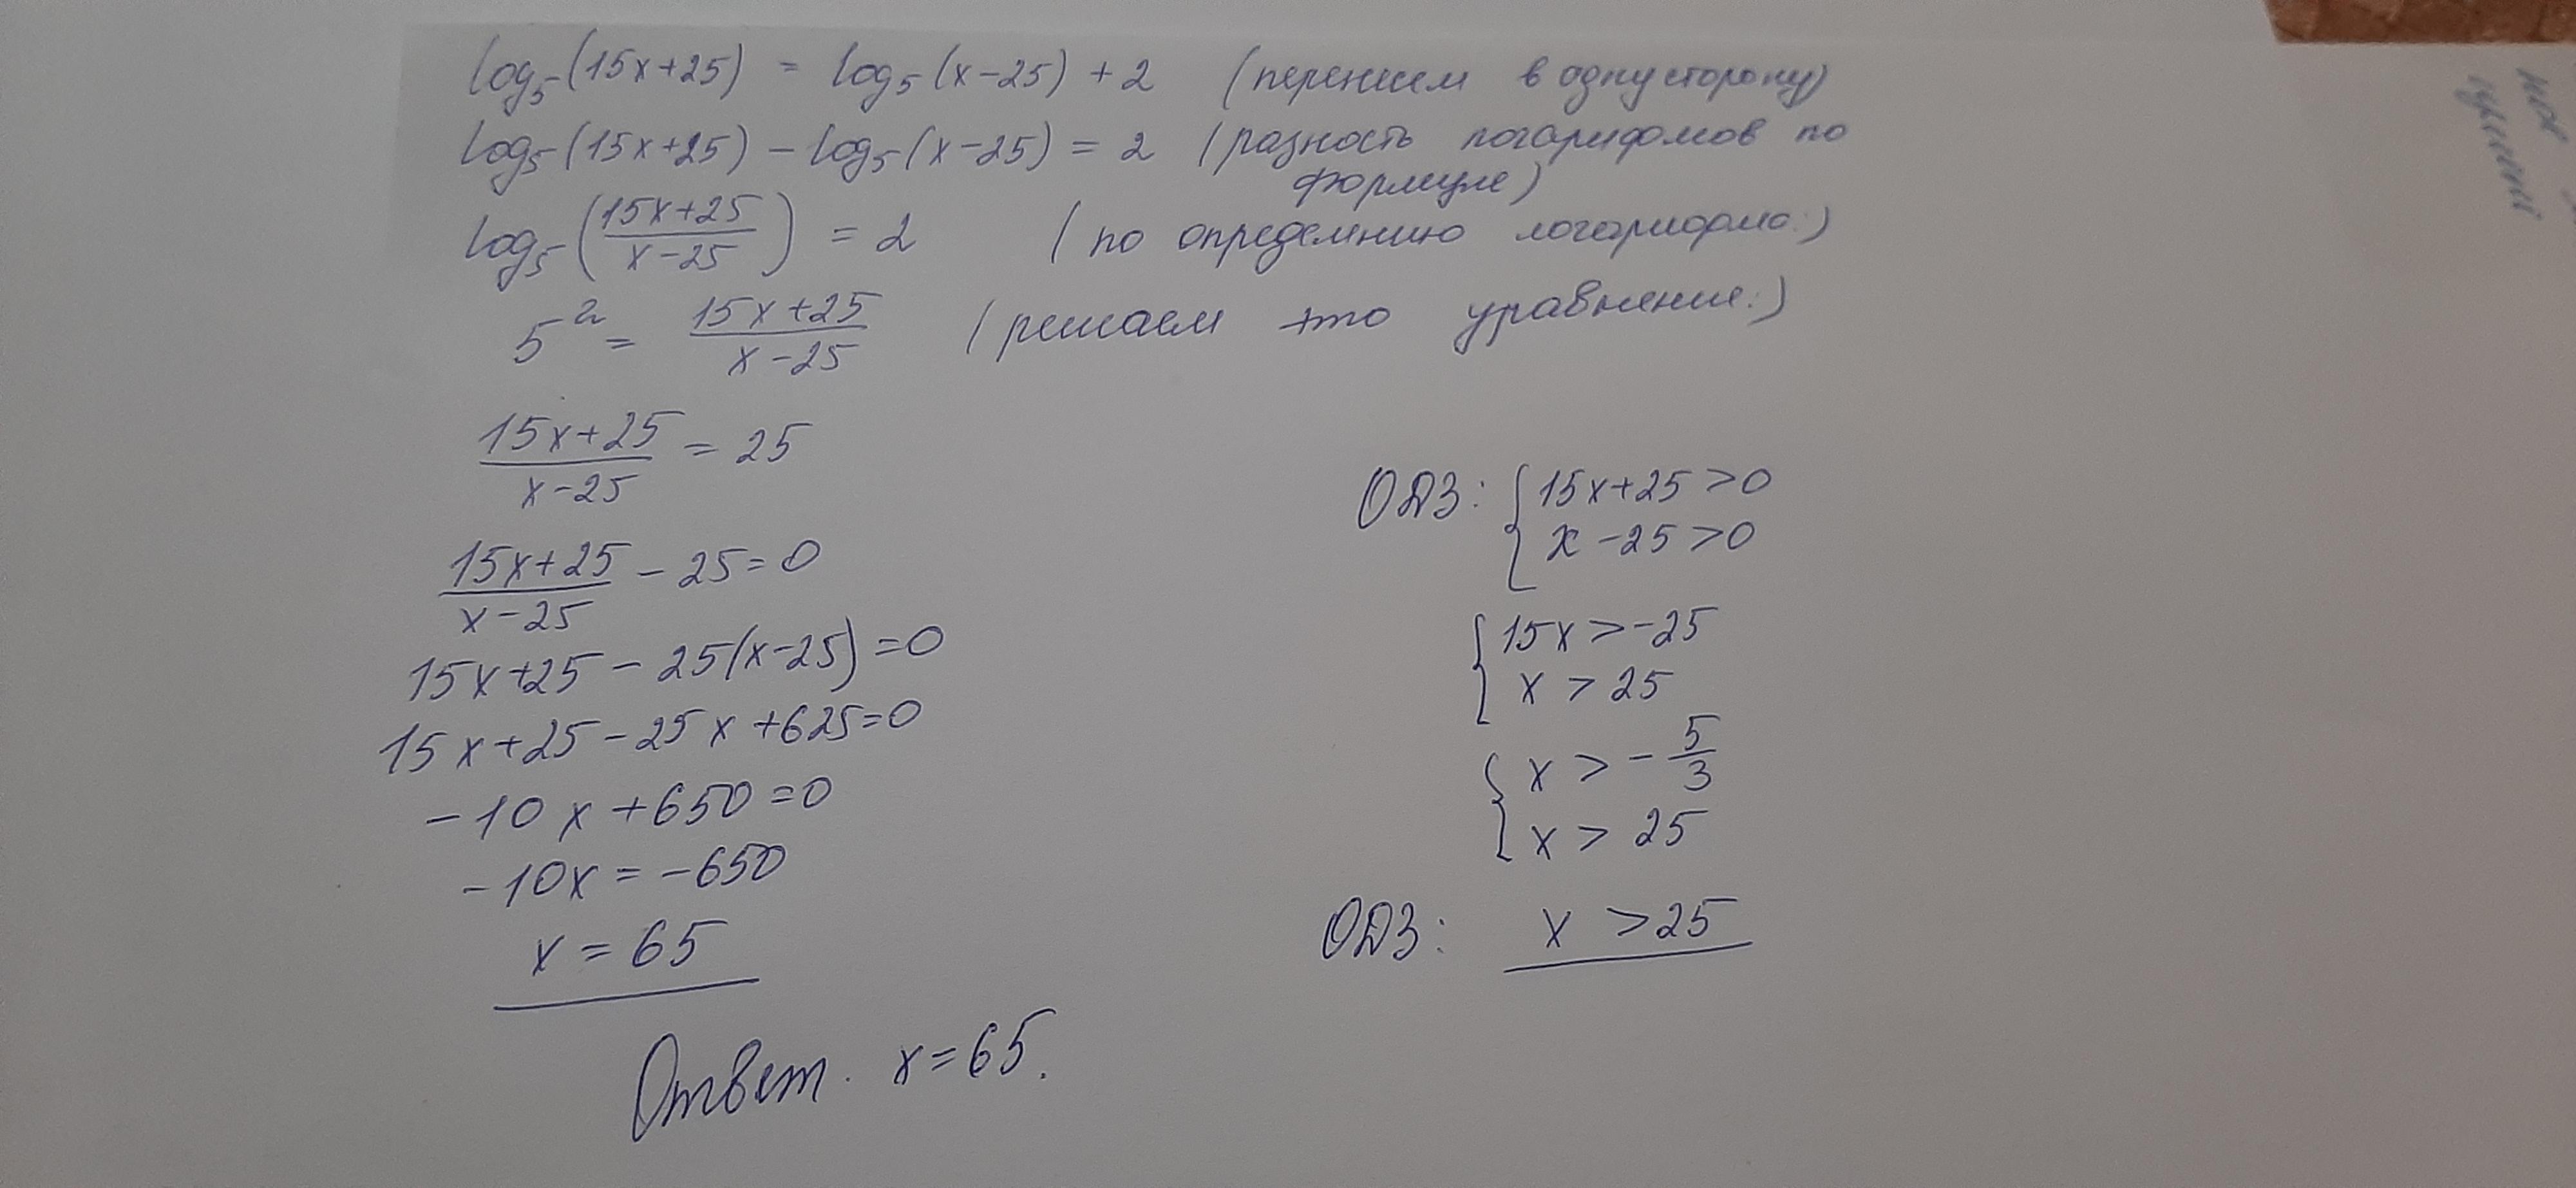 log₅(15x+25) = log₅(x-25) + 2 (перенесем в одну сторону)
log₅(15x+25) - log₅(x-25) = 2 (разность логарифмов по
формуле)
log₅((15x+25)/(x-25)) = 2 (по определению логарифма:)
5² = (15x+25)/(x-25) (решаем это уравнение:)
(15x+25)/(x-25) = 25
(15x+25)/(x-25) - 25 = 0
15x+25 - 25(x-25) = 0
15x+25-25x+625=0
-10x+650=0
-10x = -650
x = 65
Ответ. x=65.
ОДЗ: { 15x+25>0
x-25>0
{ 15x>-25
x > 25
{ x > -5/3
x > 25
ОДЗ: x > 25